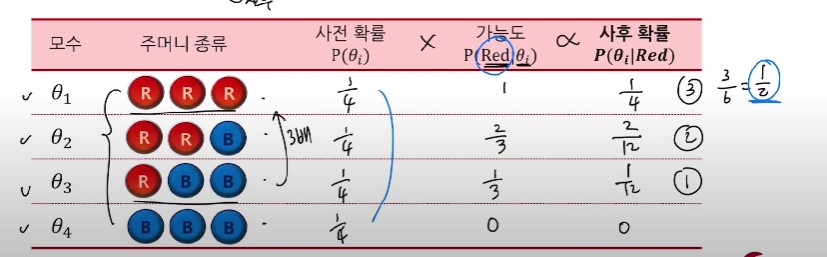 모수 주머니 종류 사전 확률 P(θᵢ) × 가능도 P(Red|θᵢ) ∝ 사후 확률 P(θᵢ|Red)
✓ θ₁ R R R 1/4 1 1/4 ③ 3/6 = 1/2
✓ θ₂ R R B 3배 1/4 2/3 2/12 ②
✓ θ₃ R B B 1/4 1/3 1/12 ①
✓ θ₄ B B B 1/4 0 0